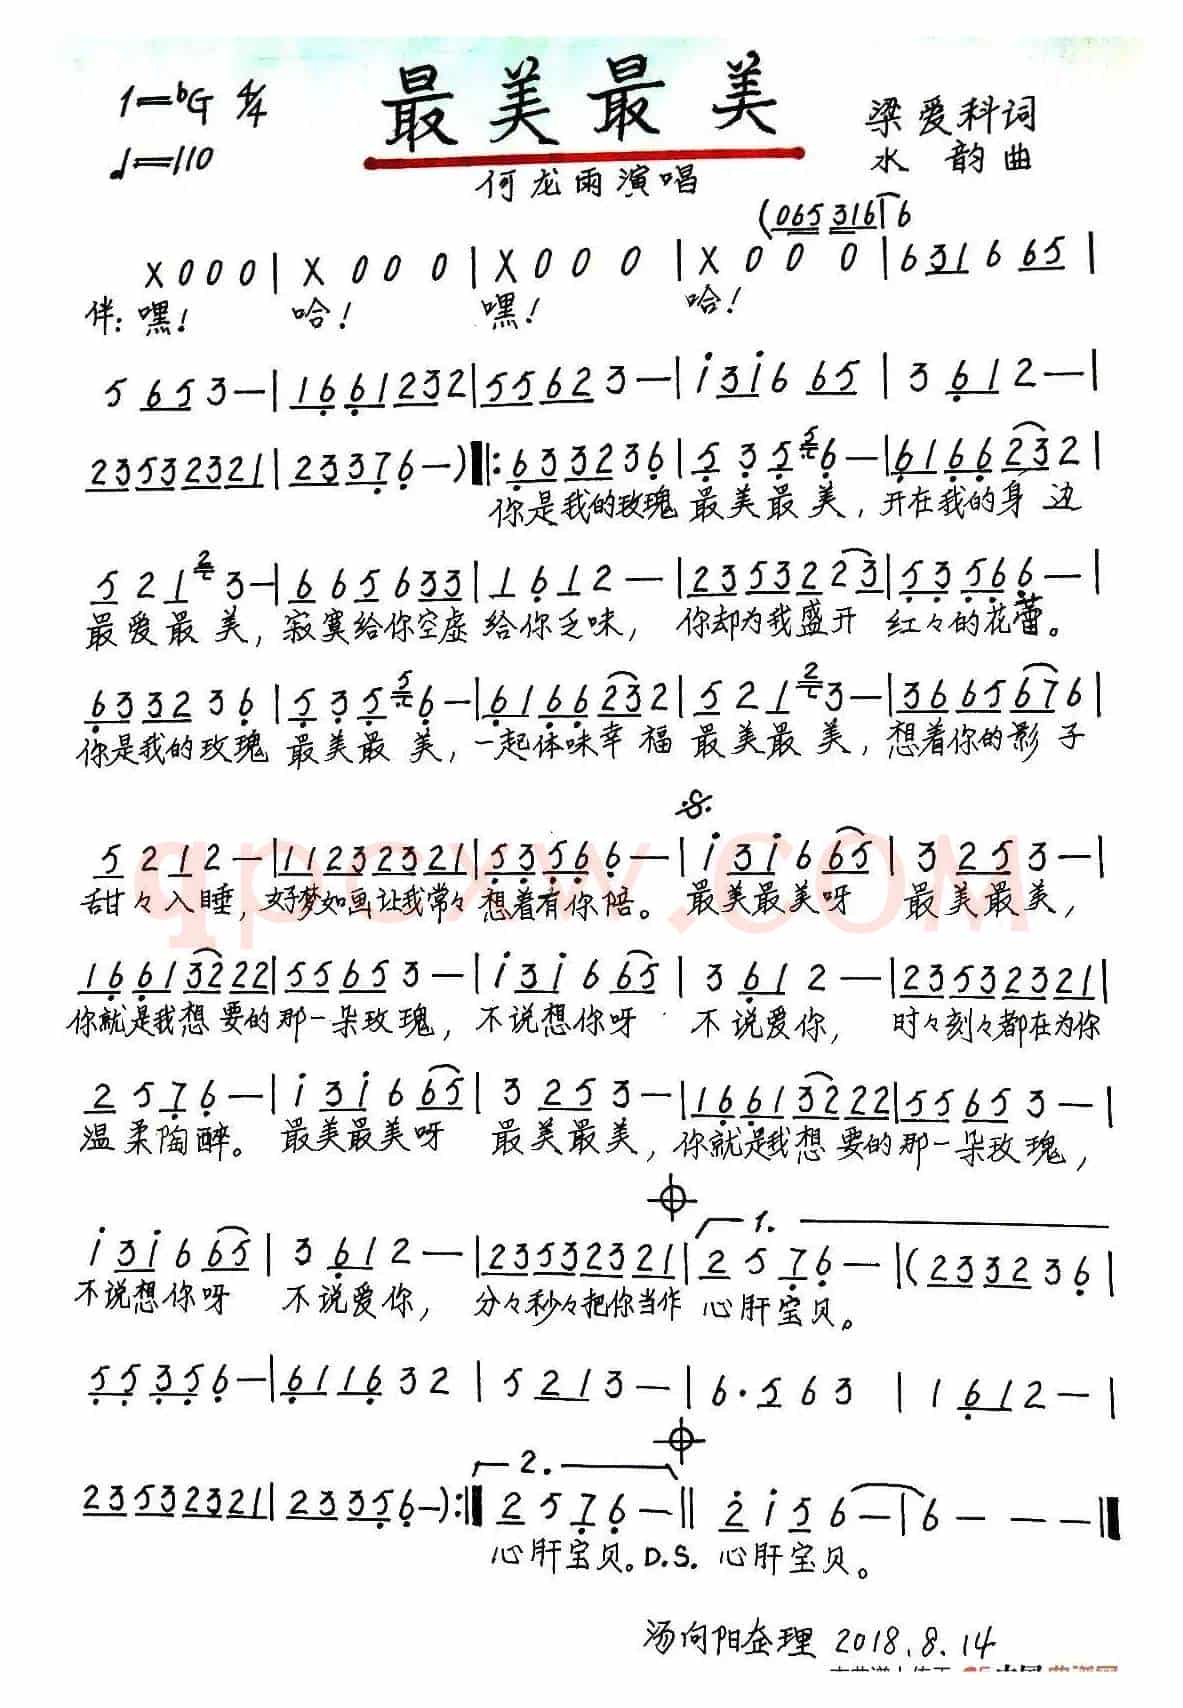 最美最美
1=♭G 4/4
♩=110
梁爱科词
水 韵 曲
何龙雨演唱
(065 3161 6
X 0 0 0 | X 0 0 0 | X 0 0 0 | X 0 0 0 | 6 31 6 65 |
伴: 嘿! 哈! 嘿! 哈!
5 65 3 — | 16 61 23 2 | 55 62 3 — | i 3i 6 65 | 3 61 2 — |
23 53 23 21 | 23 37 6 — ) ‖: 63 32 3 6 | 5 3 5 6 — | 61 66 23 2 |
你是我的玫瑰 最美最美, 开在我的身 边
5 2 1 3 — | 66 56 33 | 1 61 2 — | 23 53 22 3 | 53 56 6 — |
最爱最美, 寂寞给你空虚 给你乏味, 你却为我盛开 红々的花蕾。
63 32 3 6 | 5 3 5 6 — | 61 66 23 2 | 5 2 1 3 — | 36 65 67 6 |
你是我的玫瑰 最美最美, 一起体味幸福 最美最美, 想着你的影子
5 21 2 — | 11 23 23 21 | 53 56 6 — | i 3i 6 65 | 3 25 3 — |
甜々入睡, 好梦如画让我常々 想着有你陪。 最美最美呀 最美最美,
16 61 32 22 | 55 65 3 — | i 3i 6 65 | 3 61 2 — | 23 53 23 21 |
你就是我想要的那一朵玫瑰, 不说想你呀 不说爱你, 时々刻々都在为你
2 5 7 6 — | i 3i 6 65 | 3 25 3 — | 16 61 32 22 | 55 65 3 — |
温柔陶醉。 最美最美呀 最美最美, 你就是我想要的那一朵玫瑰,
1.
i 3i 6 65 | 3 61 2 — | 23 53 23 21 | 2 5 7 6 — | (23 32 3 6 |
不说想你呀 不说爱你, 分々秒々把你当作 心肝宝贝。
55 35 6 — | 61 16 3 2 | 5 21 3 — | 6· 5 6 3 | 1 61 2 — |
2.
23 53 23 21 | 23 35 6 — ) :‖ 2 5 7 6 — ‖ 2 i 5 6 — | 6 — — — ‖
心肝宝贝。D.S. 心肝宝贝。
汤向阳企理 2018.8.14
qpcxw.COM